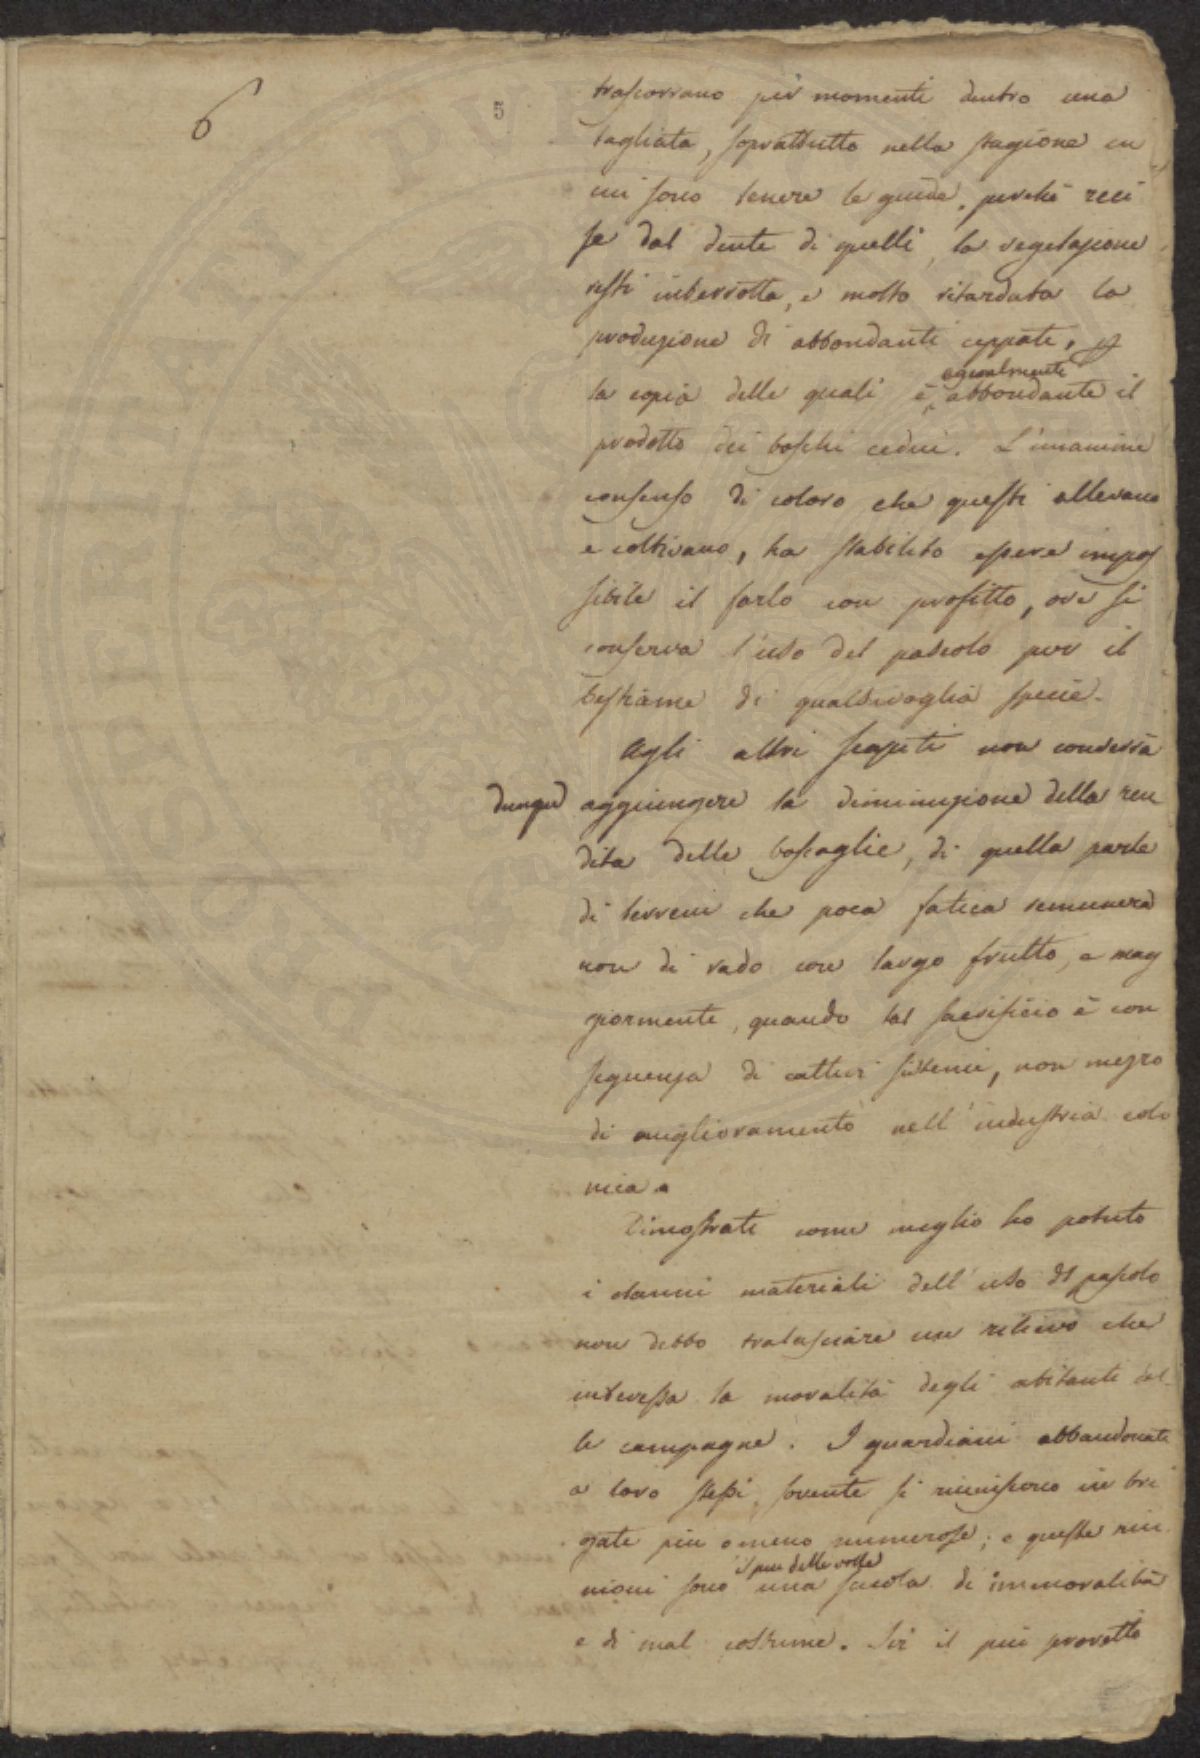 6
5
trascorrano più momenti dentro una
tagliata, soprattutto nella stagione in
cui sono tenere le guide, perchè reci
se dal dente di quelli, la vegetazione
resti interrotta, e molto ritardata la
produzione di abbondanti ceppate, p
egualmente
la copia delle quali è abbondante il
prodotto dei boschi cedui. L'unanime
consenso di coloro che questi allevano
e coltivano, ha stabilito essere impos
sibile il farlo con profitto, ove si
conserva l'uso del pascolo per il
bestiame di qualsivoglia specie.
Agli altri scapiti non converrà
dunque aggiungere la diminuzione della ren
dita delle boscaglie, di quella parte
di terreni che poca fatica remunera
non di rado con largo frutto, e mag
giormente, quando tal sacrificio è con
seguenza di cattivi sistemi, non mezzo
di miglioramento nell'industria colo
nica.
Dimostrati come meglio ho potuto
i danni materiali dell'uso del pascolo
non debbo tralasciare un rilievo che
interessa la moralità degli abitanti del
le campagne. I guardiani abbandonati
a loro stessi, sovente si riuniscono in bri
gate più o meno numerose; e queste riu
il più delle volte
nioni sono una scuola di immoralità
e di mal costume. Ivi il più provetto